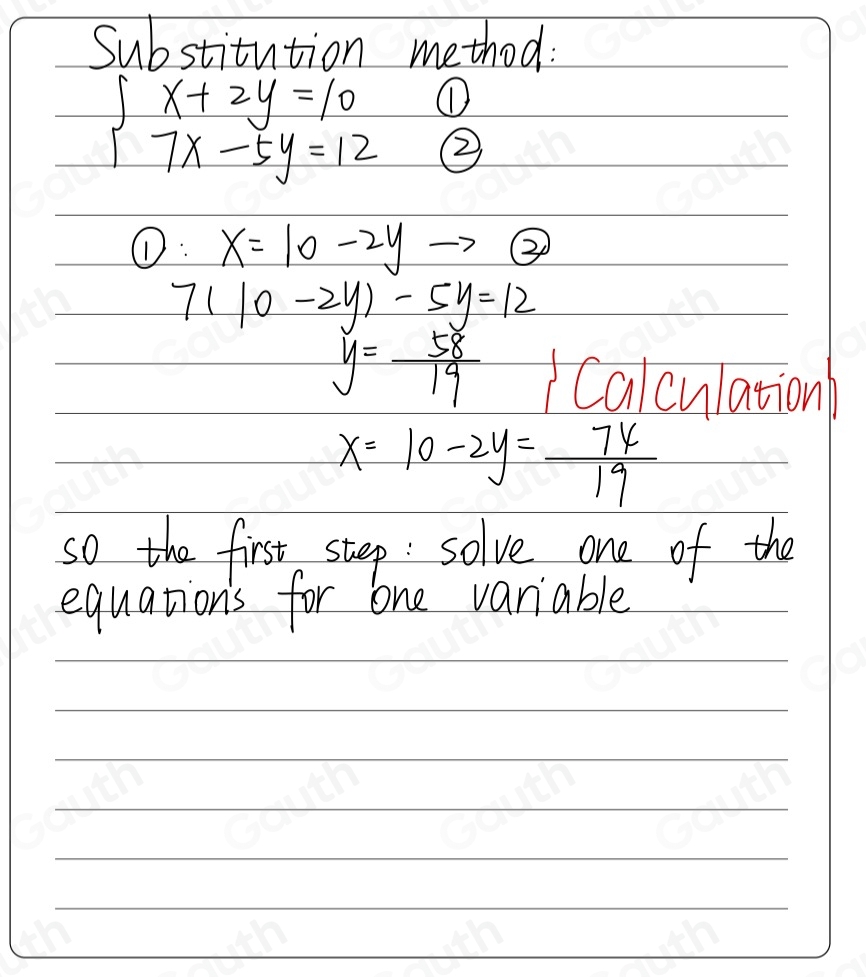 Substitution method:
{ x + 2y = 10 ①
7x - 5y = 12 ②
①: x = 10 - 2y -> ②
7(10 - 2y) - 5y = 12
y = 58/19
{Calculation}
x = 10 - 2y = 74/19
so the first step: solve one of the
equations for one variable
Gauth